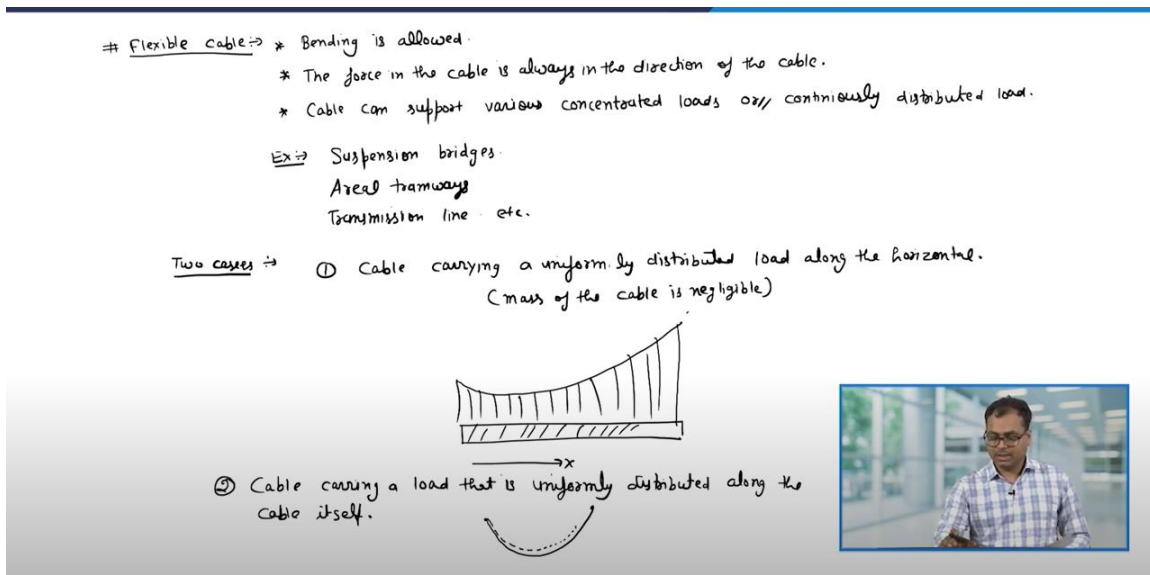 # Flexible Cable :→ * Bending is allowed.
* The force in the cable is always in the direction of the cable.
* Cable can support various concentrated loads or// continiously distributed load.
Ex :→ Suspension bridges.
Areal tramways
Transmission line etc.
Two cases :→ ① Cable carrying a uniformly distributed load along the horizontal.
(mass of the cable is negligible)
→x
② Cable carring a load that is uniformly distributed along the
cable itself.